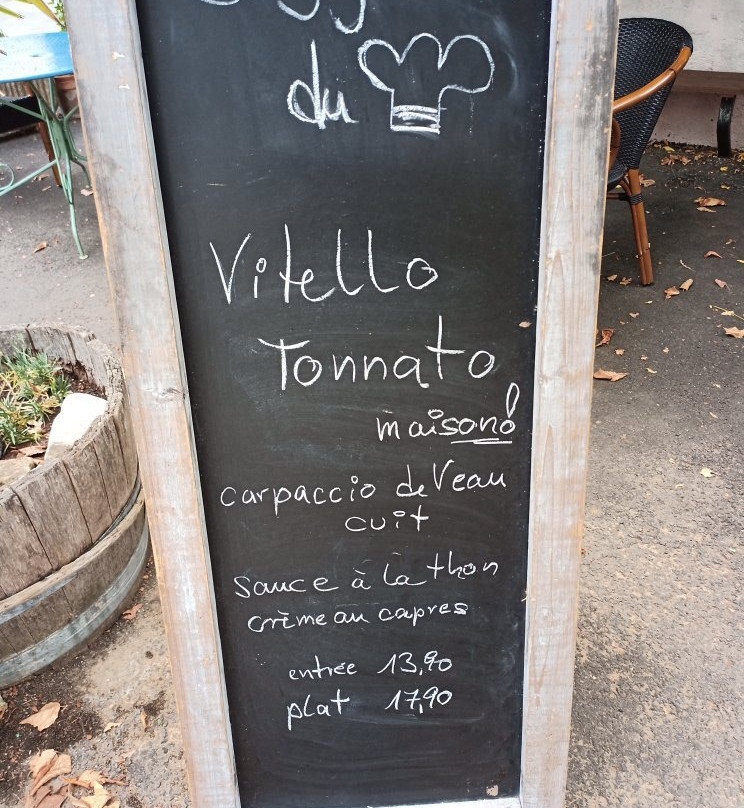 du
Vitello
Tonnato
maison!
carpaccio de Veau
cuit
sauce à la thon
crème au capres
entrée 13,90
plat 17,90